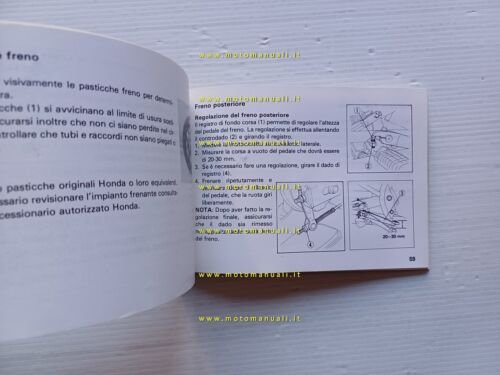 www.motomanuali.it
freno
visivamente le pasticche freno per determi
cche (1) si avvicinano al limite di usura sosti
curarsi inoltre che non ci siano perdite nel cir
ntrollare che tubi e raccordi non siano piegati o
www.motomanuali.it
o pasticche originali Honda o loro equivalenti,
ssario revisionare l'impianto frenante consulta
cessionario autorizzato Honda.
Freno posteriore
Regolazione del freno posteriore
Il registro di fondo corsa (1) permette di regolare l'altezza
del pedale del freno. La regolazione si effettua allentando
il controdado (2) e girando il registro.
1. la motocicletta sul cavalletto laterale.
www.motomanuali.it
2. Misurare la corsa a vuoto del pedale che dovrà essere
di 20-30 mm.
3. Se è necessario fare una regolazione, girare il dado di
registro (4).
4. Frenare ripetutamente e
pedale, che la ruota giri
liberamente.
NOTA: Dopo aver fatto la re-
golazione finale, assicurarsi
che il dado sia rimesso
del freno.
(4)
20-30 mm
59
www.motomanuali.it
www.motomanuali.it